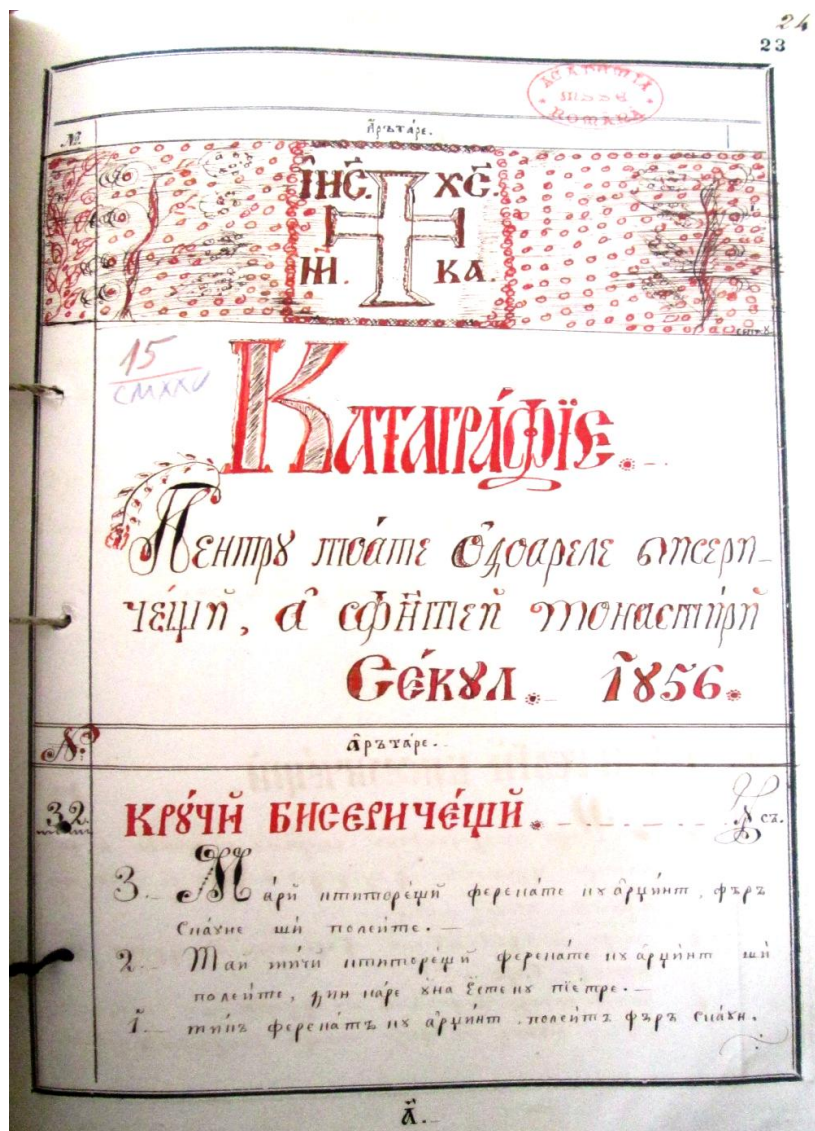 24
23
ACADEMIA
MSSE
ROMÂNĂ
№ А҆рътаре.
І҆НС҃. ХС҃.
НИ. КА.
15
CMXXV
Катагра́фїе.
Пентрꙋ тоа́те ѻ҆доареле бисери-
че́щй, а҆ сфи́нтей монастирй
Се́кꙋл. 1856.
№ А҆ръта́ре.
32. крꙋ́чй бисериче́щй.
3. Ма́рй ктиторе́щй ферека́те кꙋ а҆рџи́нт, фъръ
скаꙋне ши полеите.
2. Май ми́чй ктиторе́щй ферека́те кꙋ а҆рџи́нт ши
полеите, ꙟин каре ꙋна є҆сте кꙋ пїетре.
1. микъ ферека́тъ кꙋ а҆рџи́нт полеитъ фъръ скаꙋн.
а҃.